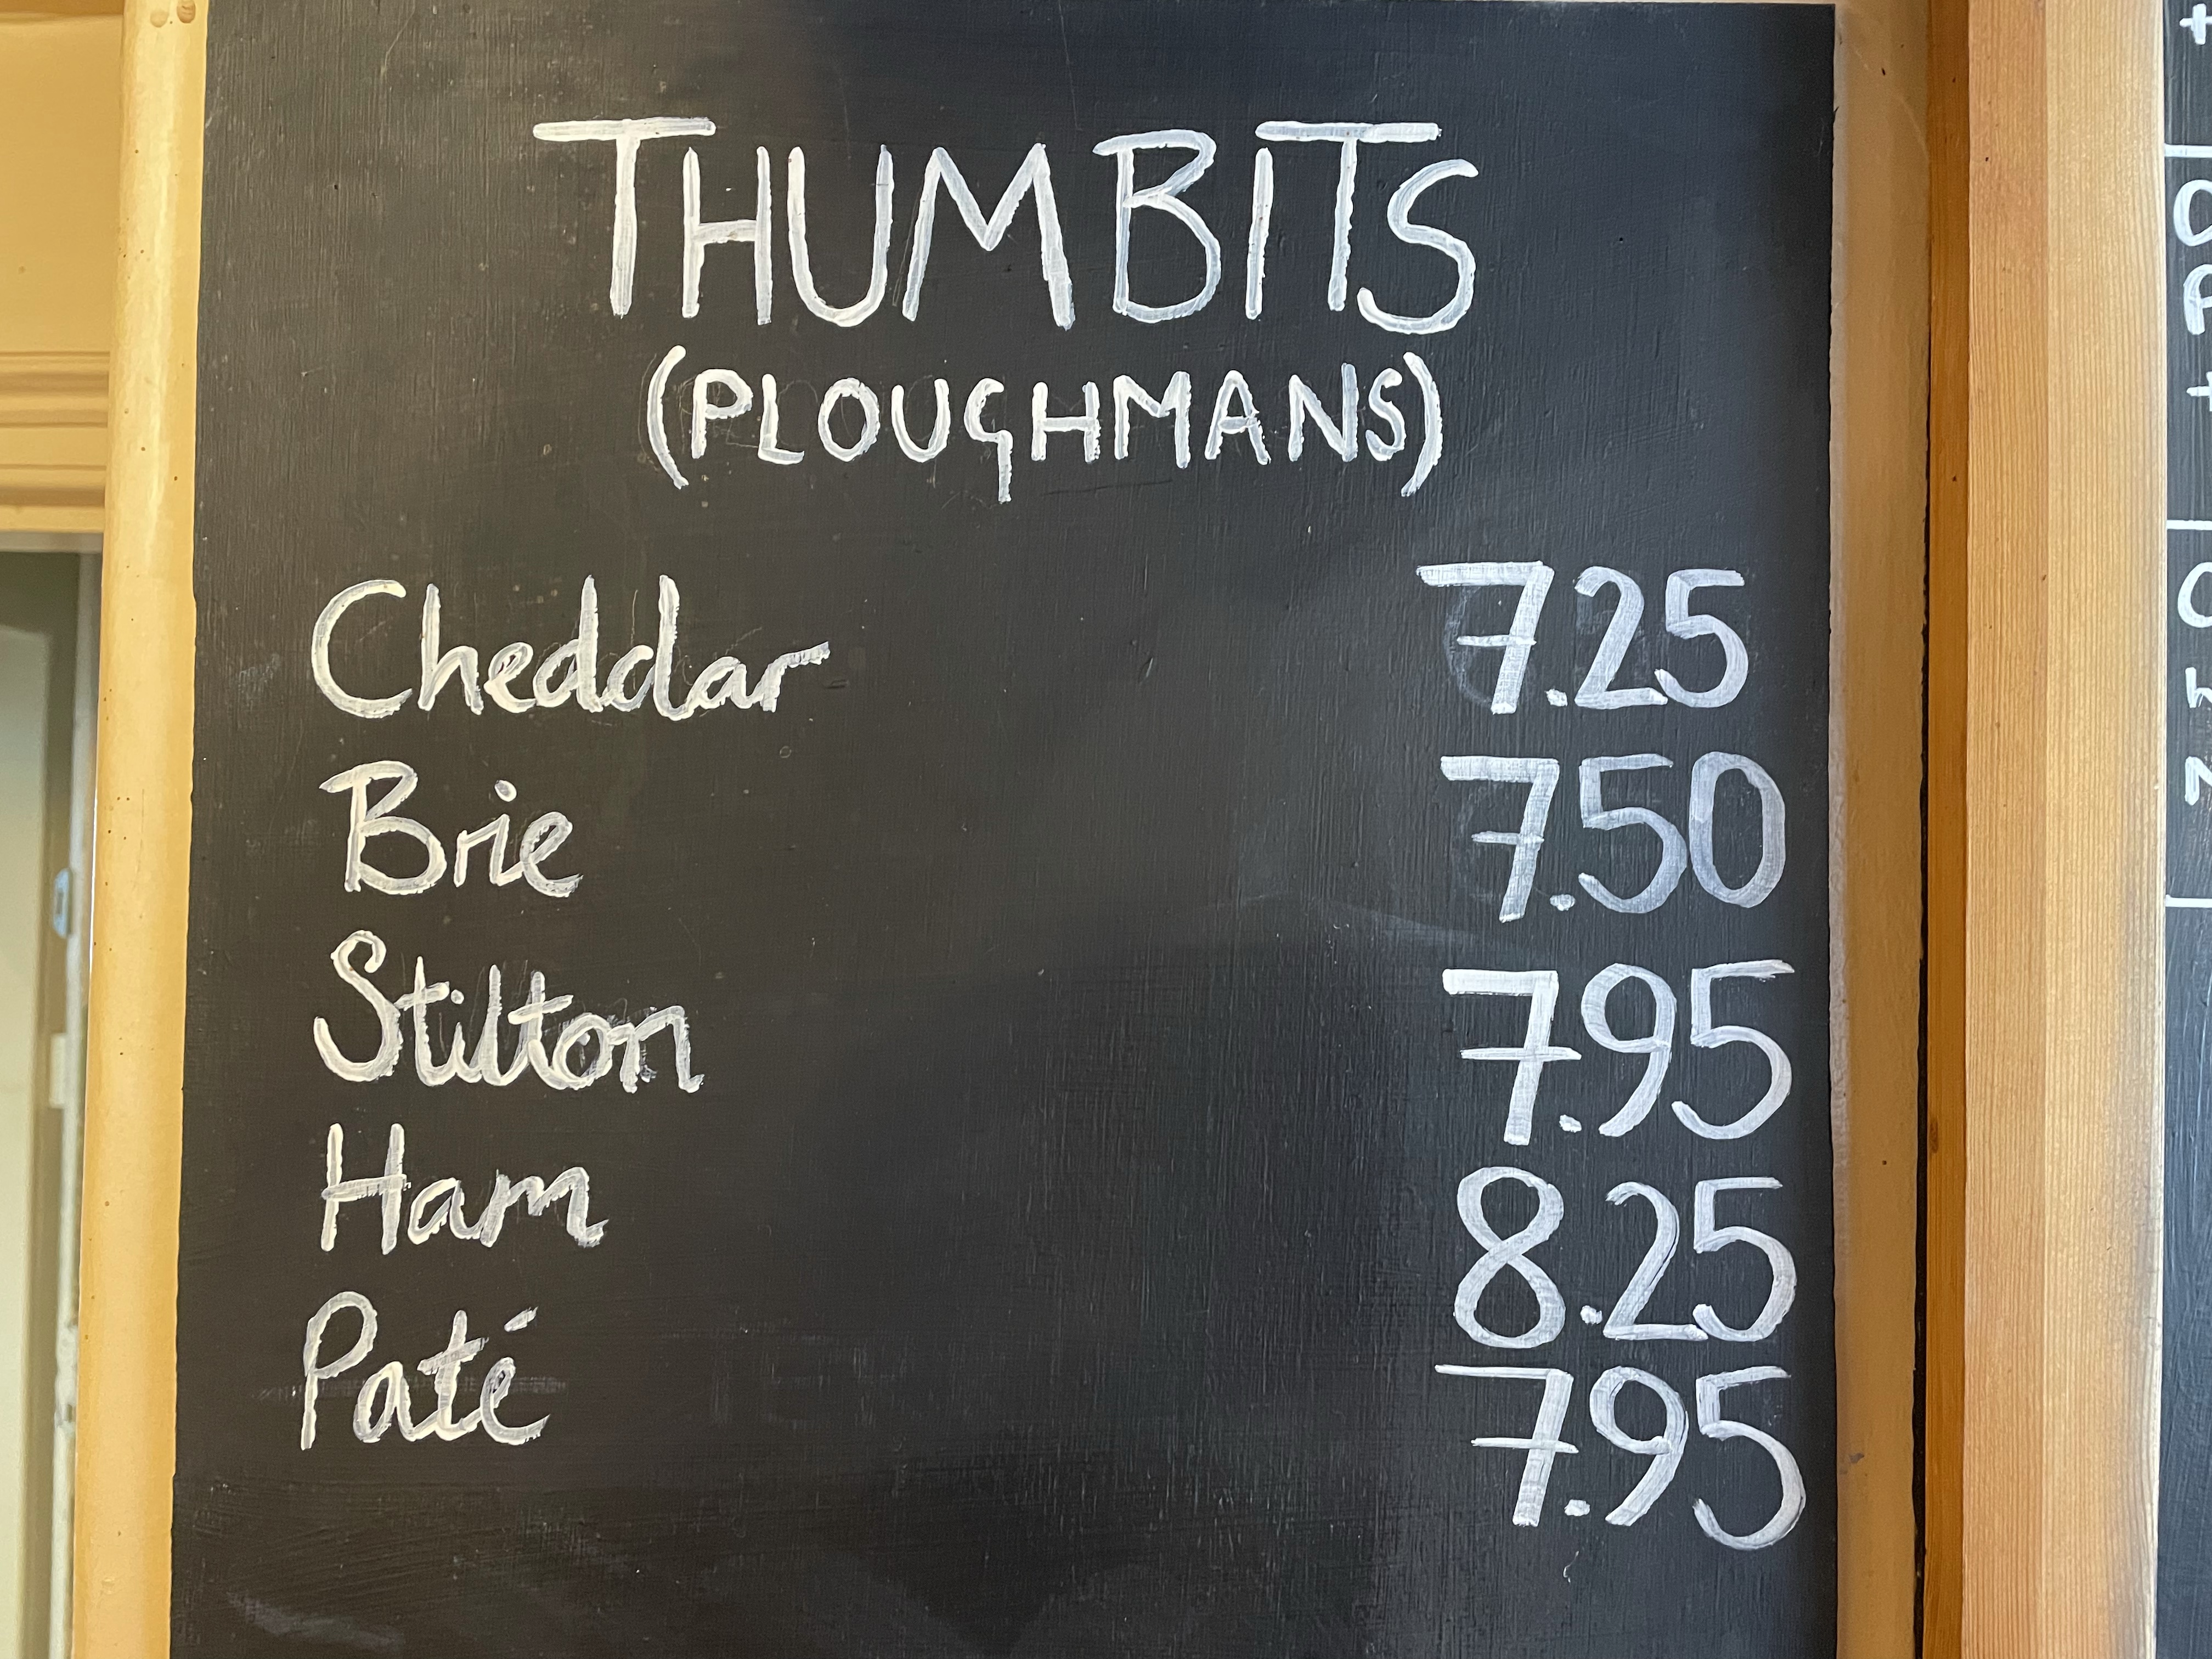 THUMBITS
(PLOUGHMANS)
Cheddar 7.25
Brie 7.50
Stilton 7.95
Ham 8.25
Paté 7.95